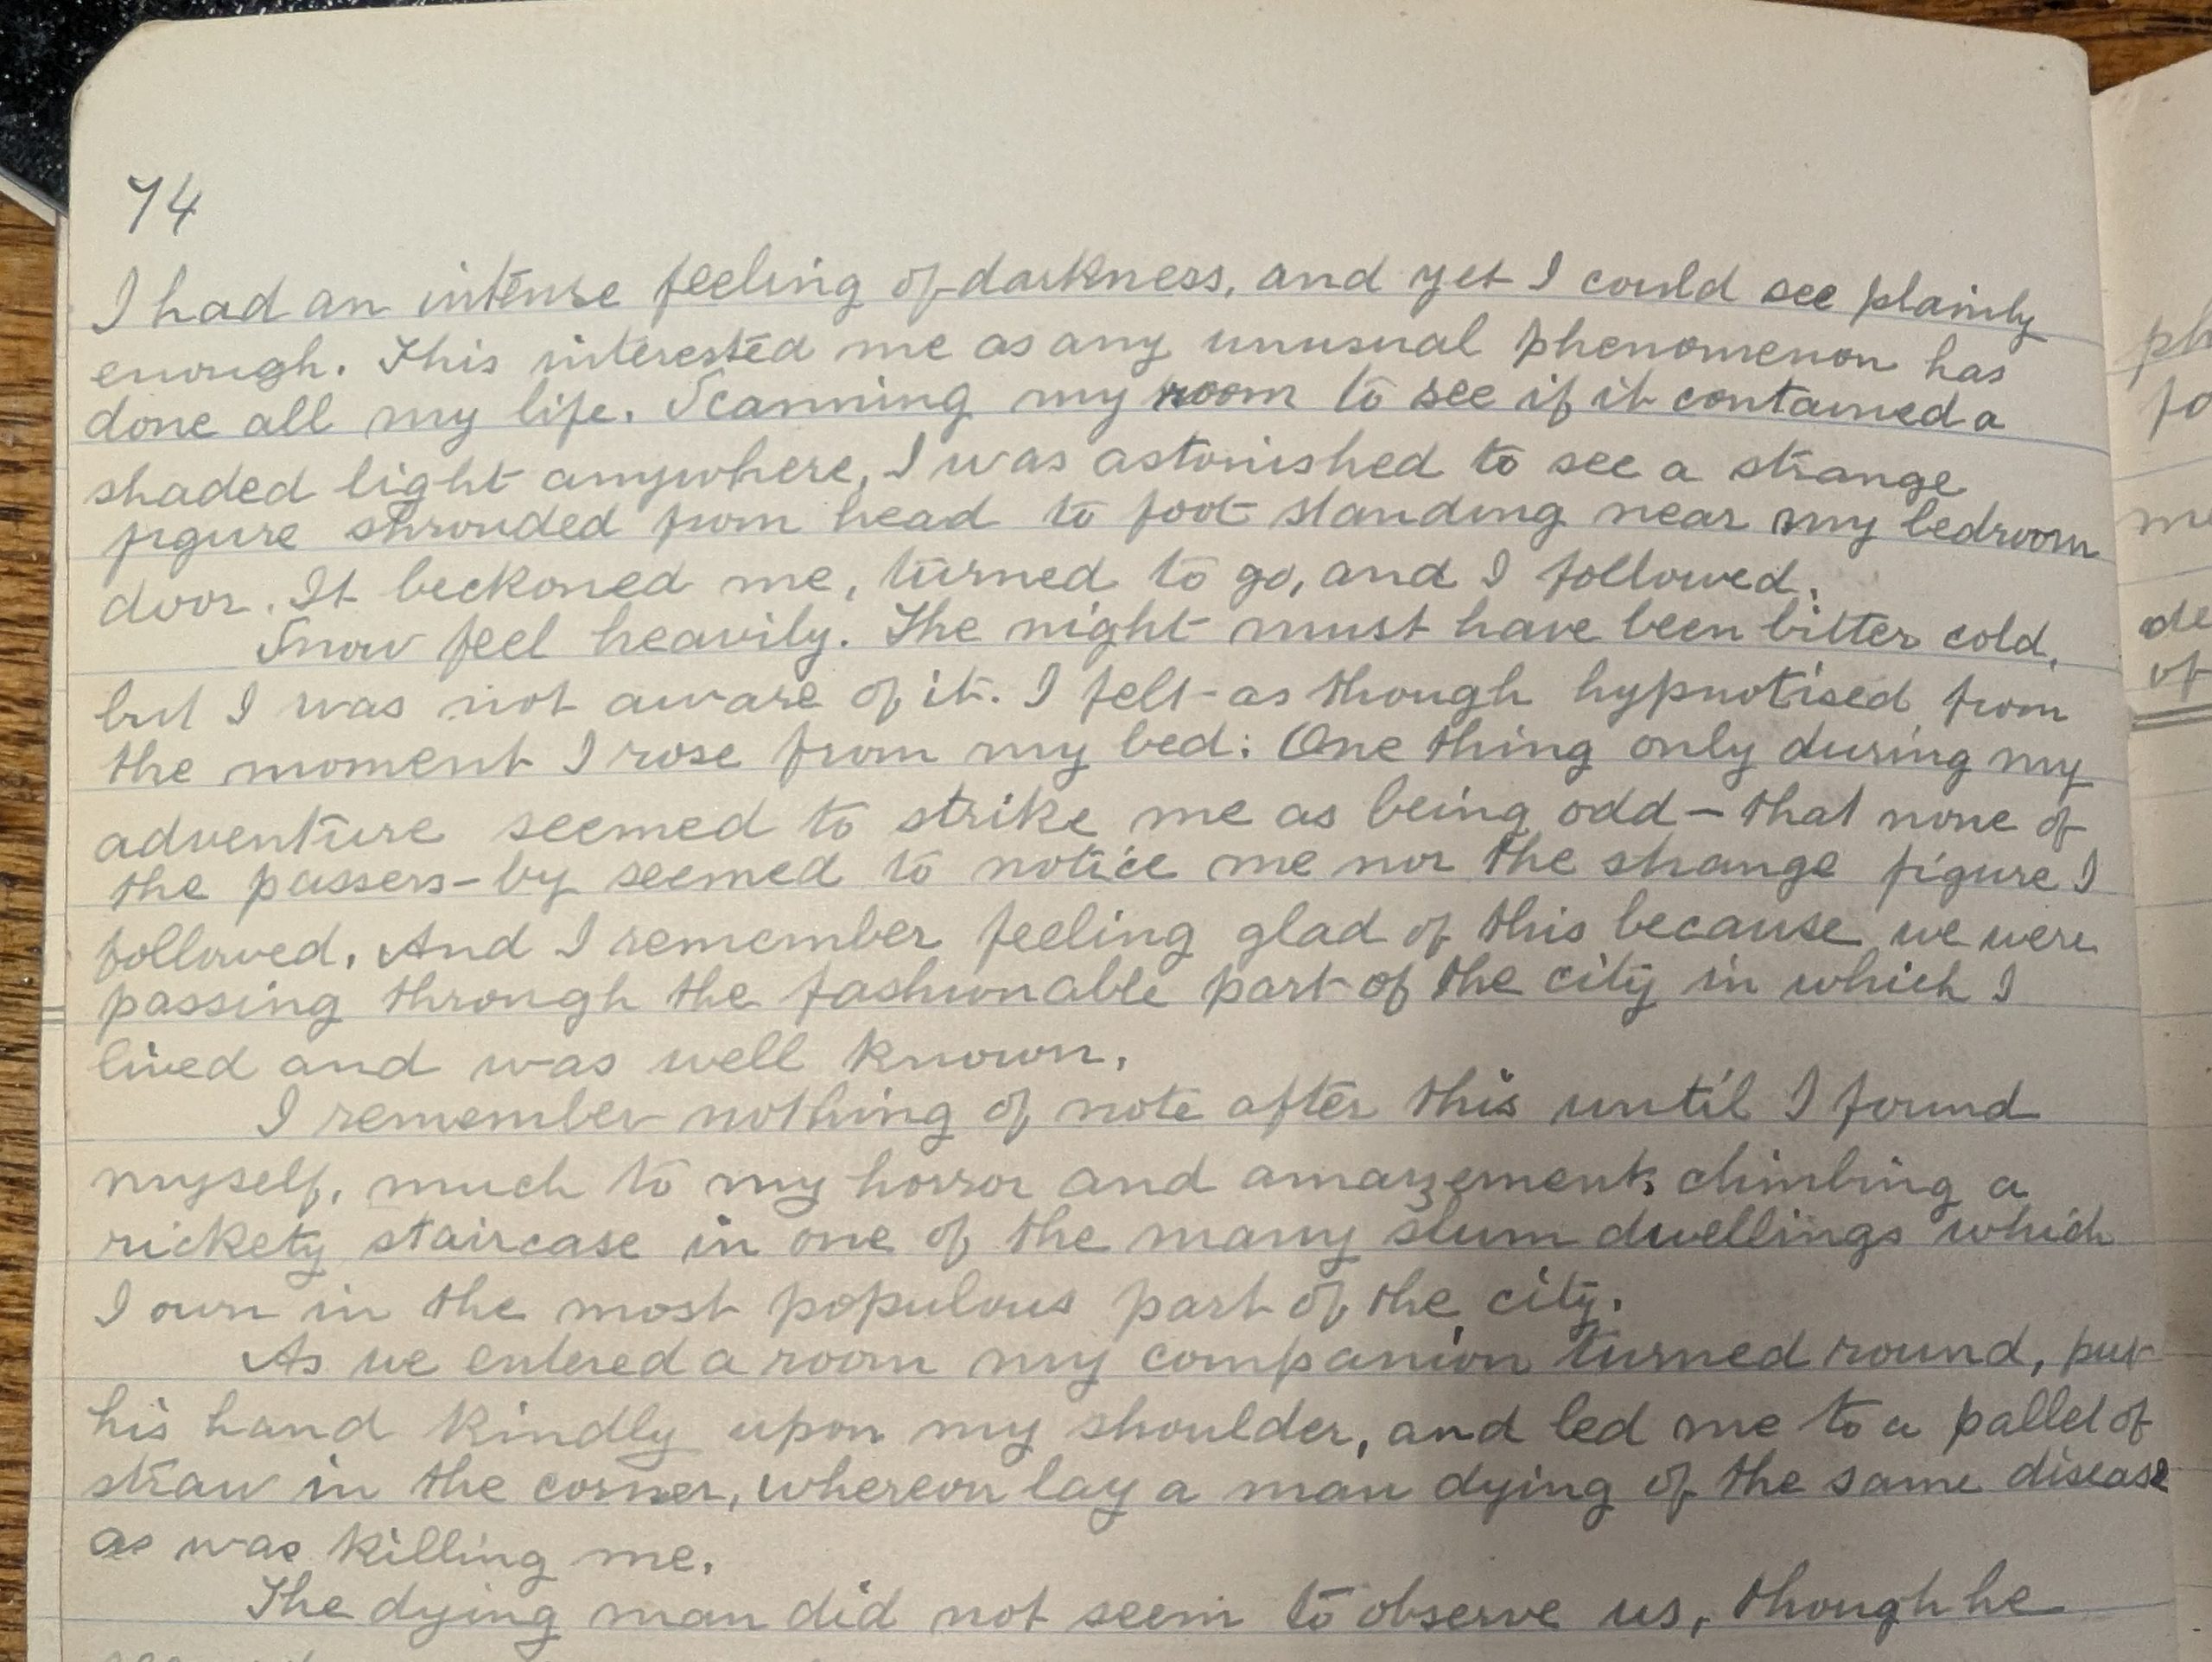 74
I had an intense feeling of darkness, and yet I could see plainly
enough. This interested me as any unusual phenomenon has
done all my life. Scanning my room to see if it contained a
shaded light anywhere, I was astonished to see a strange
figure shrouded from head to foot standing near my bedroom
door. It beckoned me, turned to go, and I followed.
Snow feel heavily. The night must have been bitter cold,
but I was not aware of it. I felt as though hypnotised from
the moment I rose from my bed: One thing only during my
adventure seemed to strike me as being odd – that none of
the passers-by seemed to notice me nor the strange figure I
followed. And I remember feeling glad of this because we were
passing through the fashionable part of the city in which I
lived and was well known.
I remember nothing of note after this until I found
myself, much to my horror and amazement, climbing a
rickety staircase in one of the many slum dwellings which
I own in the most populous part of the city.
As we entered a room my companion turned round, put
his hand kindly upon my shoulder, and led me to a pallet of
straw in the corner, whereon lay a man dying of the same disease
as was killing me.
The dying man did not seem to observe us, though he